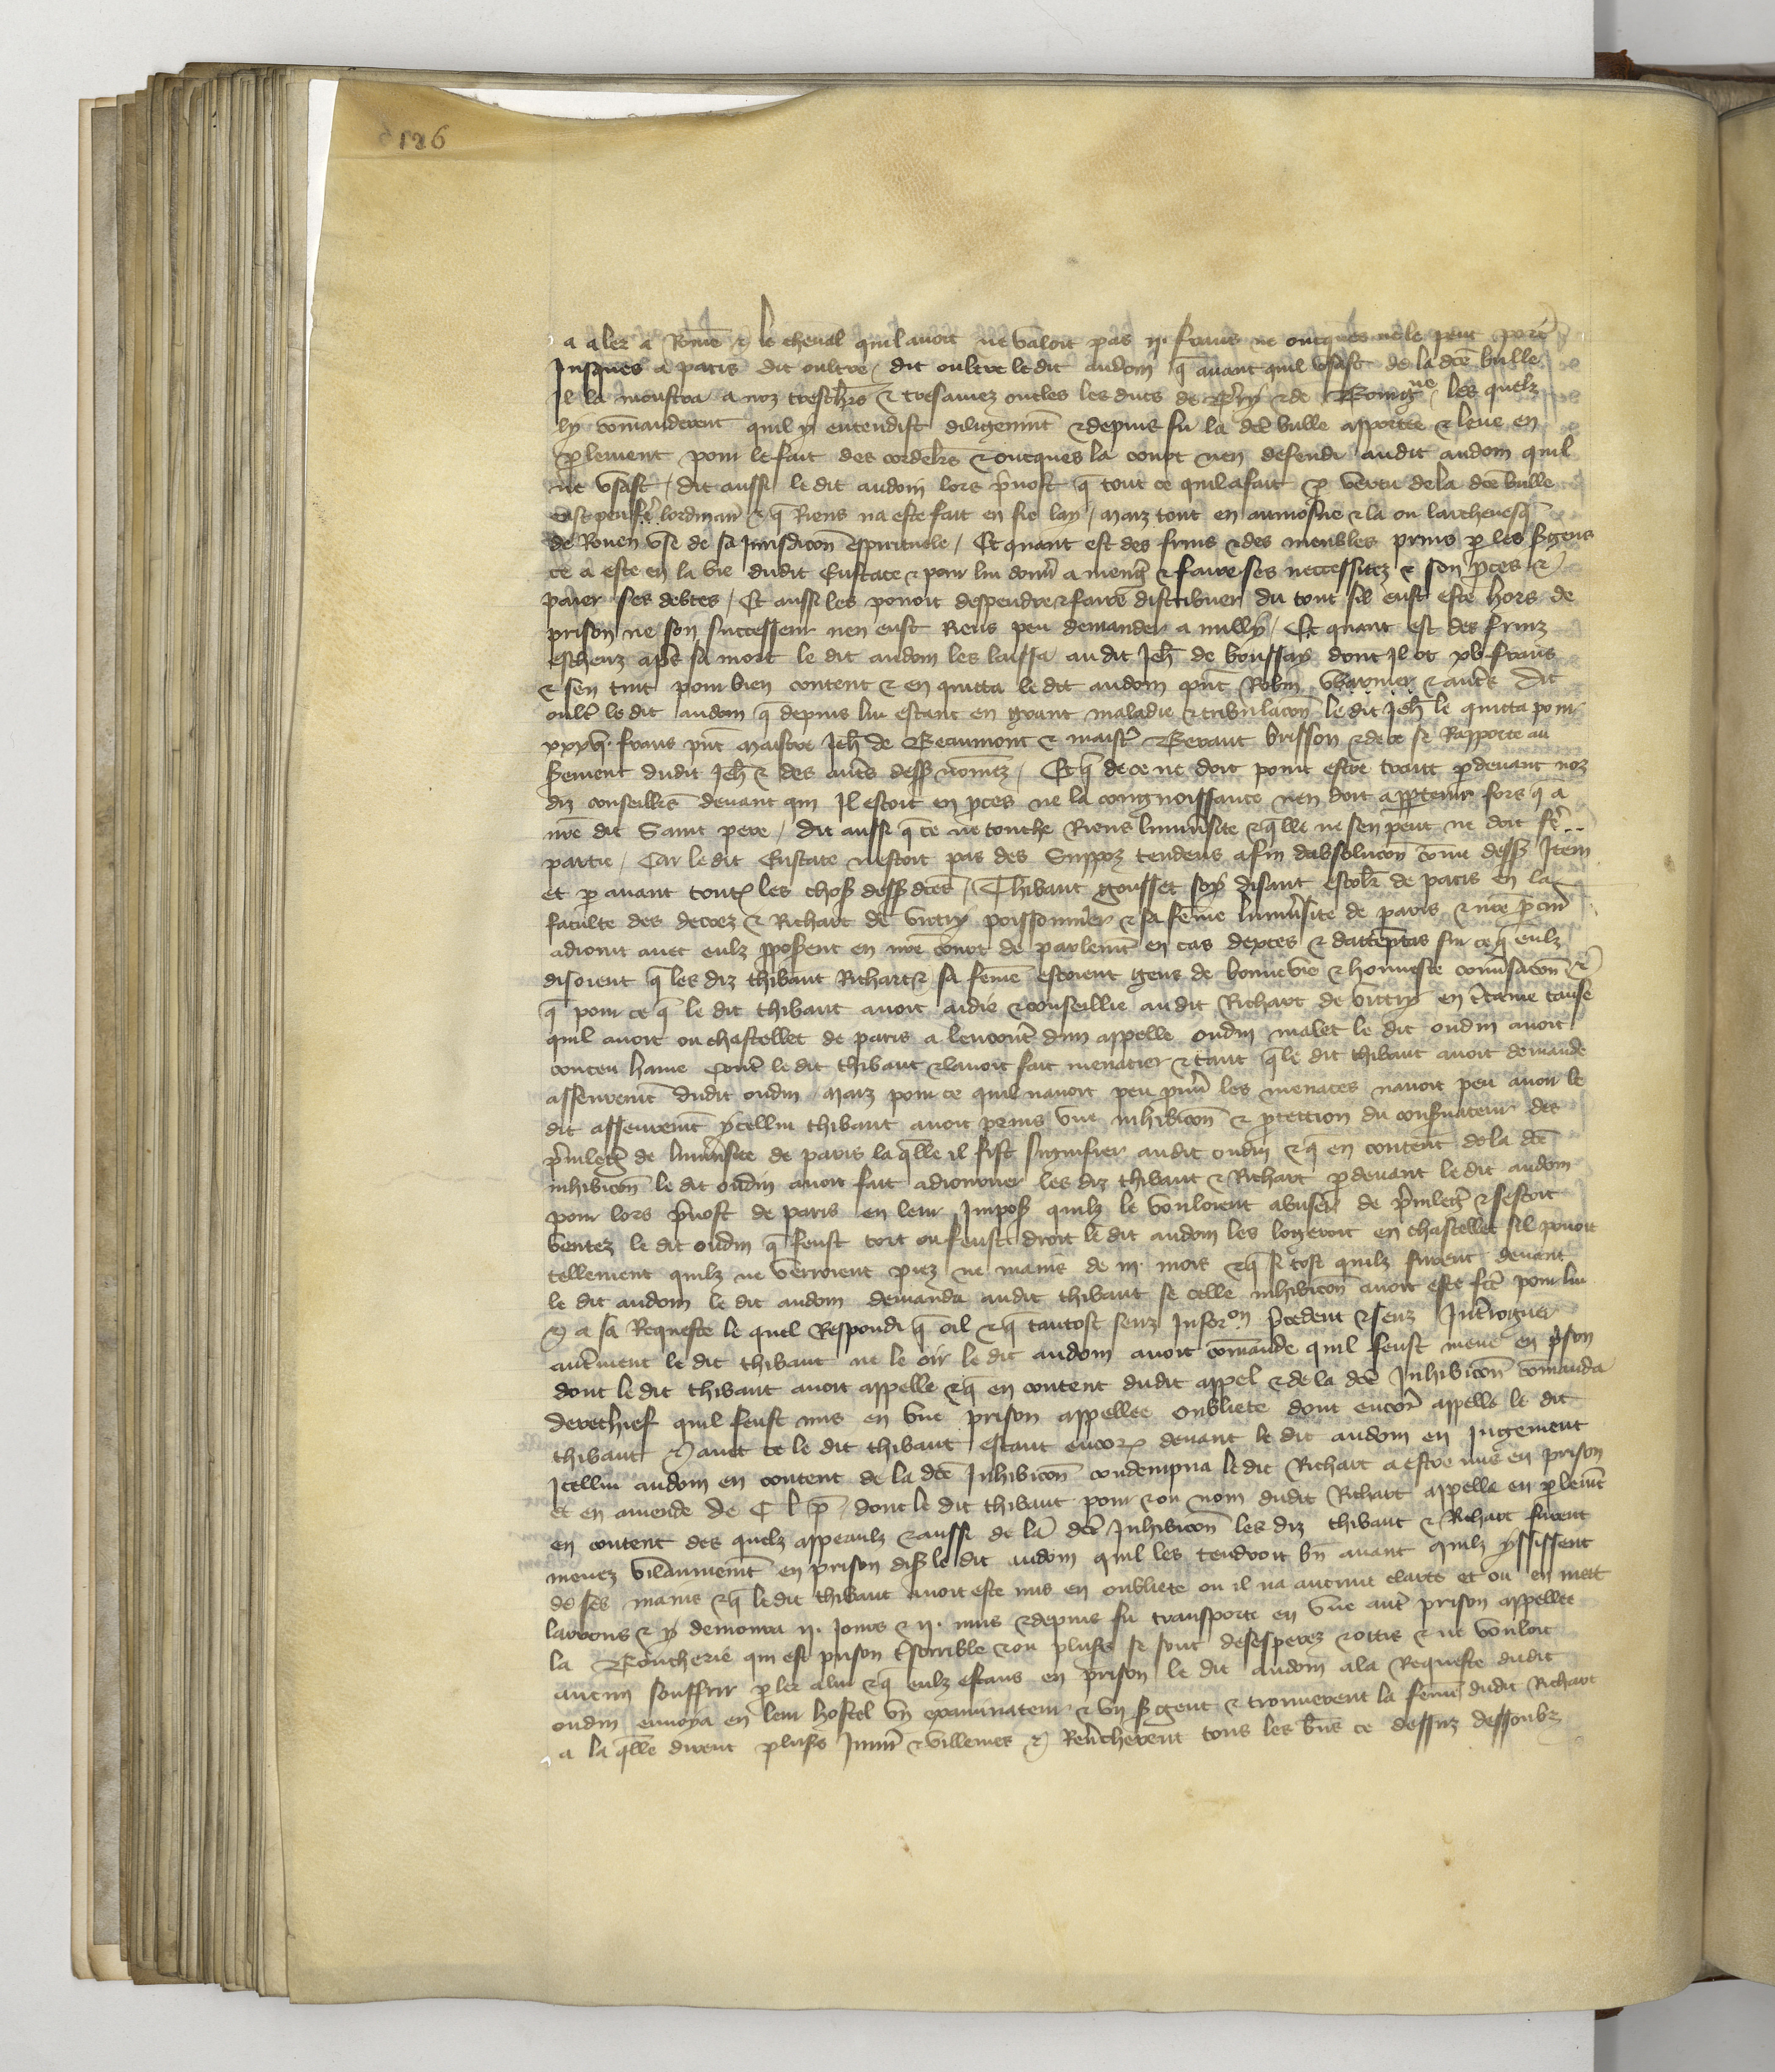 126
a aler a Rome et le cheval quil avoit ne valoit pas ii. frans ne oncques ne le peut port
Jusques a paris dit oultre / dit oultre ledit audoin q avant quil usast de la dce bulle
Il la monstra a noz treschrs et tresamez oncles les ducs de Bry et de Bourgne / les quelz
ly comanderent quil y entendist diligemnt et depuis fu la dce bulle apportee et leue en
plement pour le fait des cordelrs et oncques la court nen defendi audit audoin quil
ne usast / dit aussi le dit audoin lors pvost q tout ce quil a fait p vertu de la dce bulle
et q Riens na este fait en fie lay / maiz tout en aumosne et la ou larchevesq
de Rouen use de sa Jurisdicon espirituele / Et quant est des fruis et des meubles prins p les sgens
ce a este en la vie dudit Eustace et pour lui donn a meng et faire ses neccessitez et son pces et
paier ses debtes / Et aussi les povoit despendre et faire distribuer du tout sil eust este hors de
prison ne son successeur nen eust Riens peu demander a nully / Et quant est des fruiz
escheuz aps sa mort le dit audoin les laissa audit Jeh de boussay dont Il ot xv frans
et sen tint pour bien content et en quitta le dit audoin pnt Robin Warnier et auts Dit
oult le dit audoin q depuis lui estant en grant maladie et tribulacon le dit Jeh le quitta pour
xxxv. frans pnt maistre Jeh de Beaumont et maist Beraut brisson et de ce se Rapporte au
serement dudit Jeh et des auts dess nomez / Et q de ce ne doit point estre traitt pdevant noz
diz conseillrs devant qui Il estoit en pces ne la congnoissance nen doit apptenir fors q a
nre dit Saint pere / dit aussi q ce ne touche Riens luniversite et qlle ne sen peut ne doit fe
partie / Car le dit Eustace nestoit pas des Suppoz tendens afin dabsolucon come dess Item
et p avant toutes les chos dess dces / Thibaut gousset soy disant escolr de paris en la
faculte des decrez et Richart de vitry poissonnier et sa feme luniversite de paris et nre pcur
adjoint avec eulz pposent en nre court de parlemt en cas dexces et dattemptas sur ce q eulz
disoient q les diz thibaut Richart et sa feme estoient gens de bonne vie et honneste conversacon et
q pour ce q le dit thibaut avoit aidie et conseillie audit Richart de vitry en ctaine cause
quil avoit ou chastellet de paris a lencontre dun appelle oudin malet le dit oudin avoit
conceu haine contre le dit thibaut et lavoit fait menacier et tant q le dit thibaut avoit demande
asseuremt dudit oudin maiz pour ce quil navoit peu prouver les menaces navoit peu avoir le
dit asseuremt ycellui thibaut avoit prins une inhibicon et ptection du conservateur des
privileges de luniversite de paris la qlle il fist signifier audit oudin et q en contemt de la dce
inhibicon le dit oudin avoit fait adjourner les diz thibaut et Richart pdevant le dit audoin
pour lors pvost de paris en leur Impos quilz le vouloient abuser de privileg et sestoit
ventez le dit oudin q feust tort ou feust droit le dit audoin les logeroit en chastellet sil povoit
tellement quilz ne verroient piez ne mains de iii. mois et q si tost quilz furent devant
le dit audoin le dit audoin demanda audit thibaut se celle inhibicon avoit este fce pour lui
et a sa Requeste le quel Respondi q oil et q tantost senz Inforon pcedent et senz Interroguer
autrement le dit thibaut ne le oir le dit audoin avoit comande quil feust mene en prison
dont le dit thibaut avoit appelle et q en contemt dudit appel et de la dce Inhibicon comanda
derechief quil feust mis en une prison appellee oubliete dont encor appella le dit
thibaut et avec ce le dit thibaut estant encores devant le dit audoin en Jugement
Icellui audoin en contemt de la dce Inhibicon condempna le dit Richart a estre mene en prison
et en amende de C l p / dont le dit thibaut pour et ou nom dudit Richart appella en plemt
en contemt des quelz appeaulz et aussi de la dce Inhibicon les diz thibaut et Richart furent
menez vilainnemt en prison dis le dit audoin quil les tendroit bn avant quilz yssissent
de ses mains et q le dit thibaut avoit este mis en oubliete ou il na aucune clarte et ou en mett
larrons et y demoura ii. Jours et ii. nuis et depuis fu transporte en une autre prison appellee
la Boucherie qui est prison tsorrible et ou plus se sont desesperez et occis et ne vouloit
aucun souffrir pler a lui et q eulz estans en prison le dit audoin a la Requeste dudit
oudin envoya en leur hostel un examinateur et un sgent et trouverent la feme dudit Richart
a la qlle dirent pluss Injur et villenies et Reverchierent tous les bns ce dessuz dessoubz